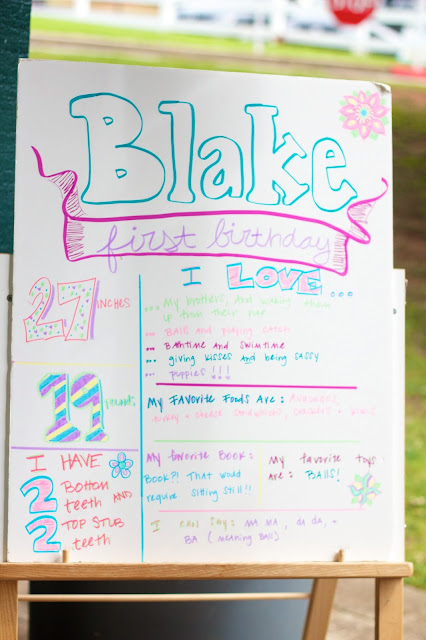 Blake
first birthday
27 INCHES
19 pounds
I HAVE
2 Bottom
teeth AND
2 TOP STUB
teeth
I LOVE ...
... My brothers, And waking them
up from their nap
... BAllS and playing catch
... BAthtime and swimtime
... giving kisses and being sassy
... puppies !!!
My Favorite Foods Are: Avocados,
turkey + cheese sandwiches, crackers +
My favorite Book:
Book?! That would
require sitting still!!
My favorite toys
are: BALLS!
I CAN SAY: MA MA, da da, +
BA (meaning Ball)